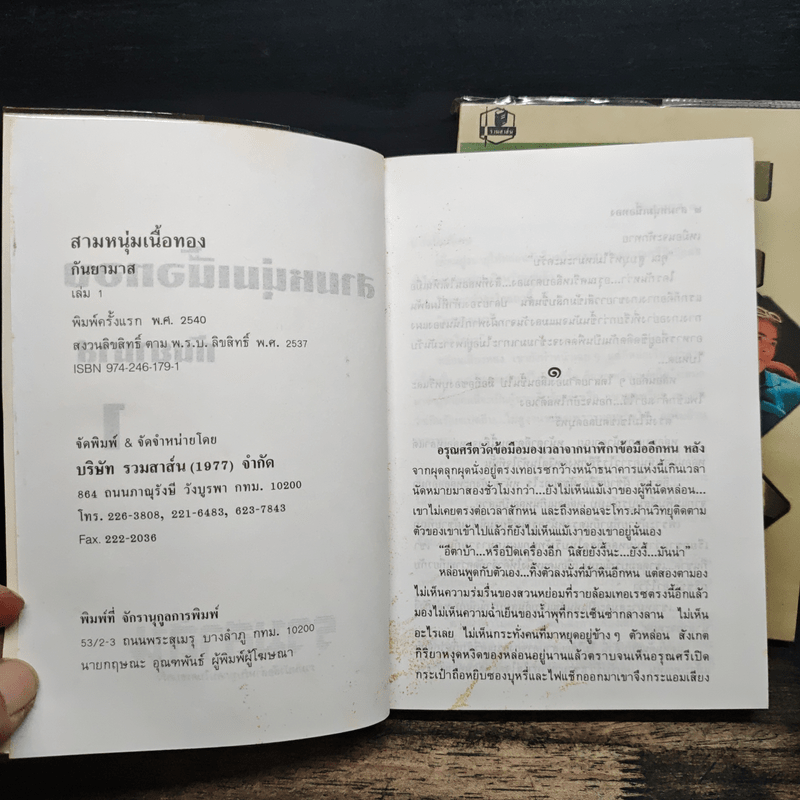 สามหนุ่มเนื้อทอง
กันยามาส
เล่ม 1
พิมพ์ครั้งแรก พ.ศ. 2540
สงวนลิขสิทธิ์ ตาม พ.ร.บ. ลิขสิทธิ์ พ.ศ. 2537
ISBN 974-246-179-1
จัดพิมพ์ & จัดจำหน่ายโดย
บริษัท รวมสาส์น (1977) จำกัด
864 ถนนภาณุรังษี วังบูรพา กทม. 10200
โทร. 226-3808, 221-6483, 623-7843
Fax. 222-2036
พิมพ์ที่ จักรานุกูลการพิมพ์
53/2-3 ถนนพระสุเมรุ บางลำภู กทม. 10200
นายกฤษณะ อุณฑพันธ์ ผู้พิมพ์ผู้โฆษณา
รวมสาส์น
๑
อรุณศรีตวัดข้อมือมองเวลาจากนาฬิกาข้อมืออีกหน หลัง
จากผุดลุกผุดนั่งอยู่ตรงเทอเรซกว้างหน้าธนาคารแห่งนี้เกินเวลา
นัดหมายมาสองชั่วโมงกว่า...ยังไม่เห็นแม้เงาของผู้ที่นัดหล่อน...
เขาไม่เคยตรงต่อเวลาสักหน และถึงหล่อนจะโทร.ผ่านวิทยุติดตาม
ตัวของเขาเข้าไปแล้วก็ยังไม่เห็นแม้เงาของเขาอยู่นั่นเอง
“อีตาบ้า...หรือปิดเครื่องอีก นิสัยยังงี้นะ...ยังงี้...มันน่า”
หล่อนพูดกับตัวเอง...ทิ้งตัวลงนั่งที่ม้าหินอีกหน แต่สองตามอง
ไม่เห็นความร่มรื่นของสวนหย่อมที่รายล้อมเทอเรซตรงนี้อีกแล้ว
มองไม่เห็นความฉ่ำเย็นของน้ำพุที่กระเซ็นซ่ากลางลาน ไม่เห็น
อะไรเลย ไม่เห็นกระทั่งคนที่มาหยุดอยู่ข้าง ๆ ตัวหล่อน สังเกต
กิริยาหงุดหงิดของหล่อนอยู่นานแล้วตราบจนเห็นอรุณศรีเปิด
กระเป๋าถือหยิบซองบุหรี่และไฟแช็กออกมาเขาจึงกระแอมเสียง